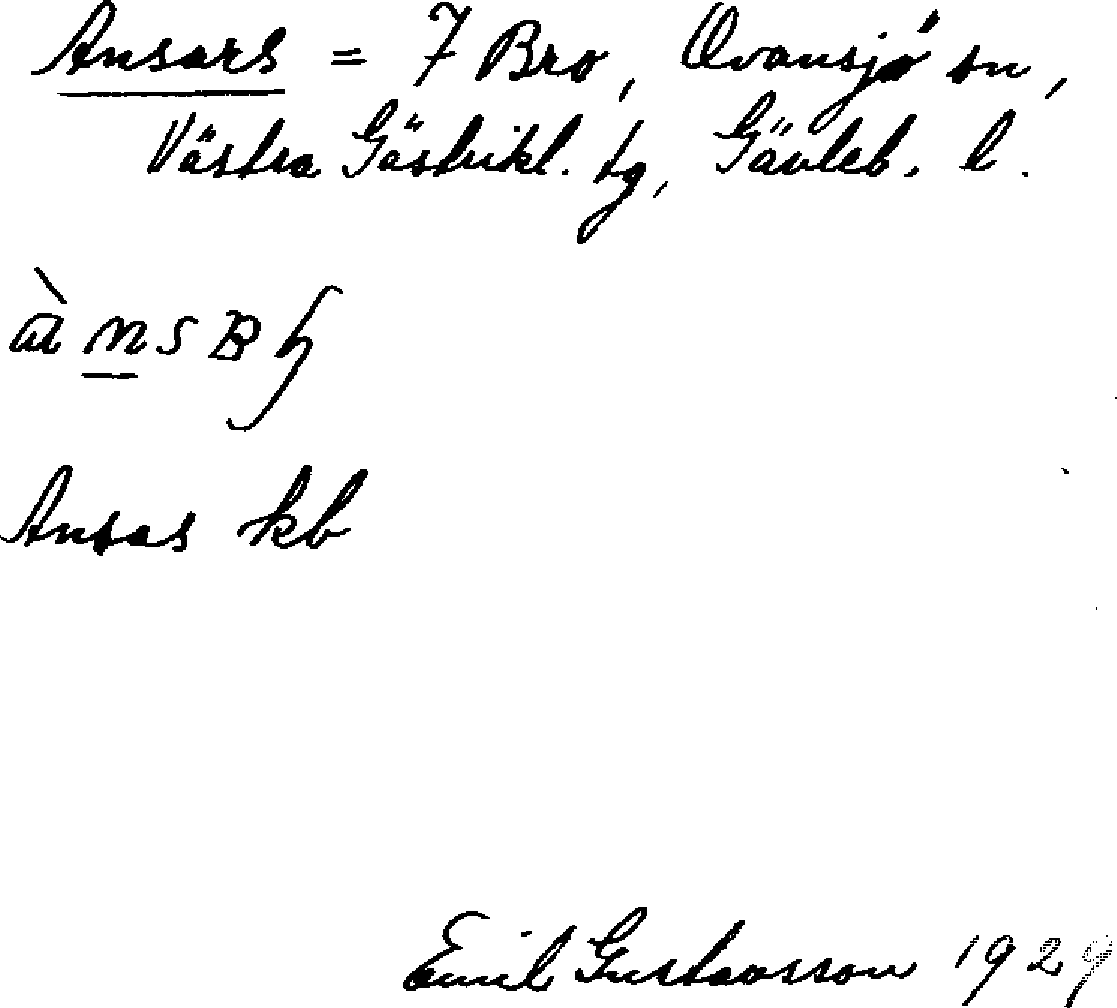 Ansars = 7 Bro, Ovansjö sn,
Västra Gästrikl. tg, Gävleb. l.
Ansas kb
Emil Gustavsson 1929